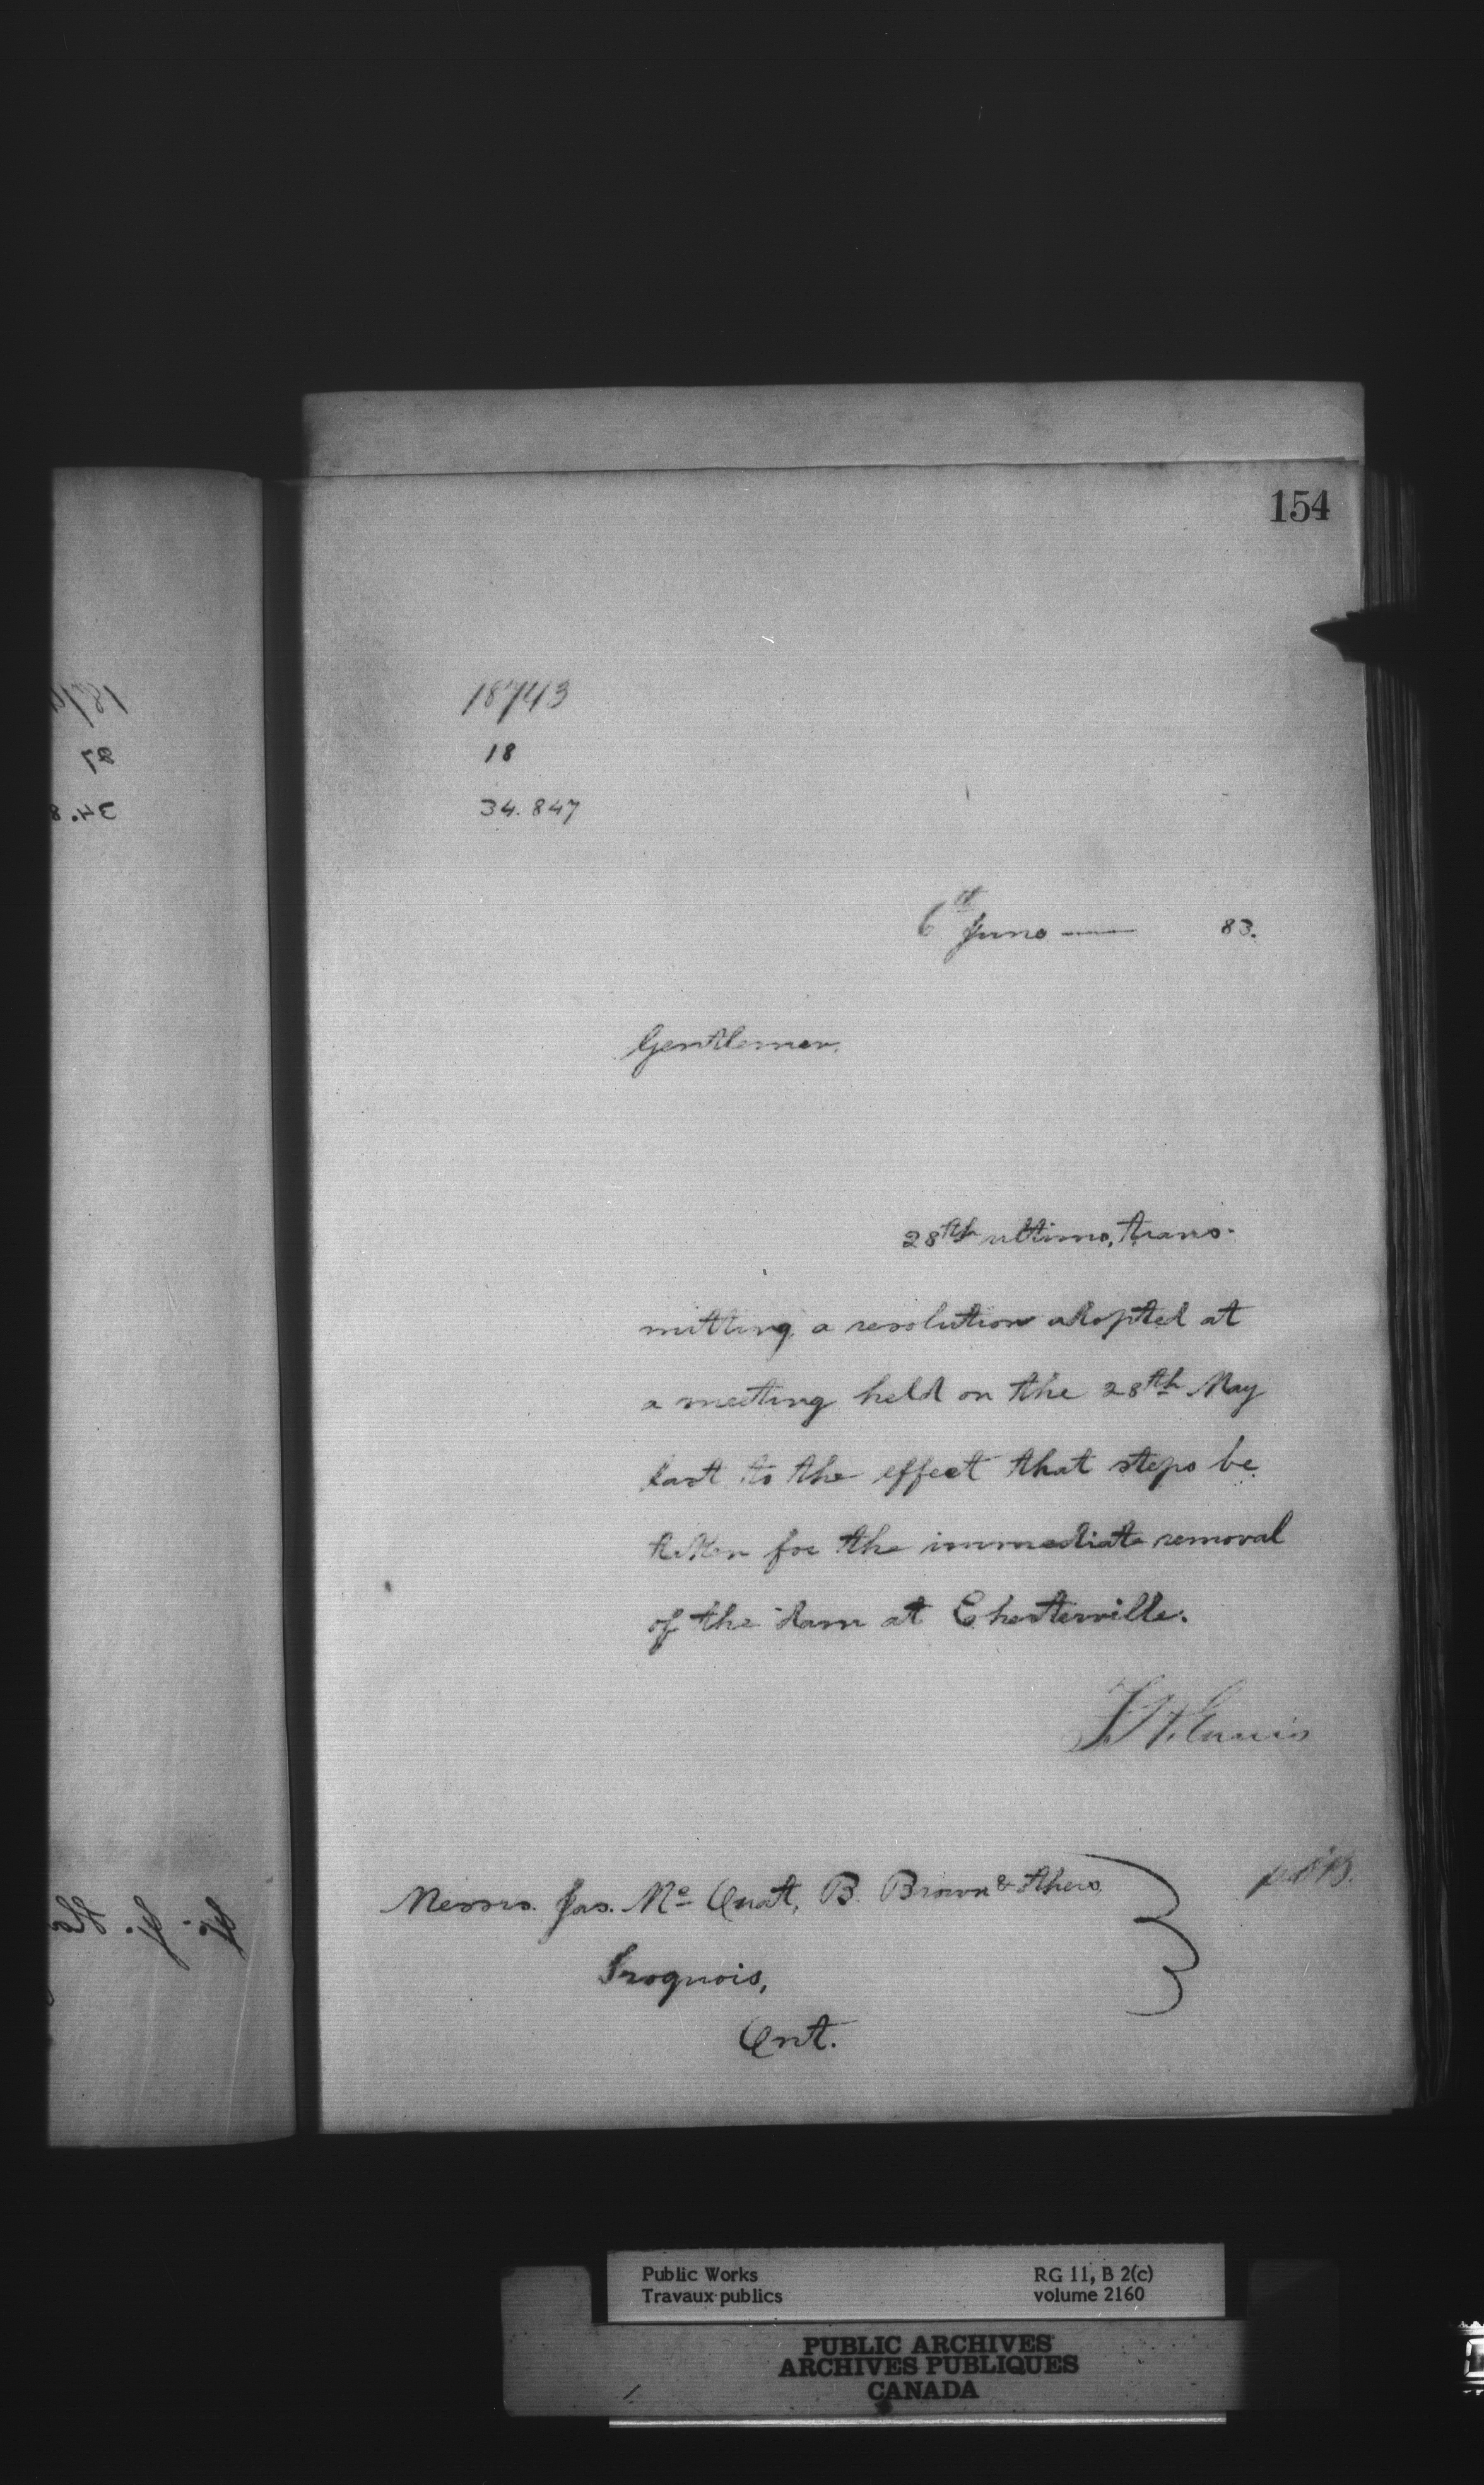 154
18743
18
34.847
6th June — 83.
Gentlemen,
28th ultimo, trans-
mitting a resolution adopted at
a meeting held on the 28th May
last to the effect that steps be
taken for the immediate removal
of the dam at Chesterville.
Messrs. Jas. Mc Quat, B. Brown & thers
Iroquois,
Ont.
Public Works
Travaux publics
RG 11, B 2(c)
volume 2160
PUBLIC ARCHIVES
ARCHIVES PUBLIQUES
CANADA